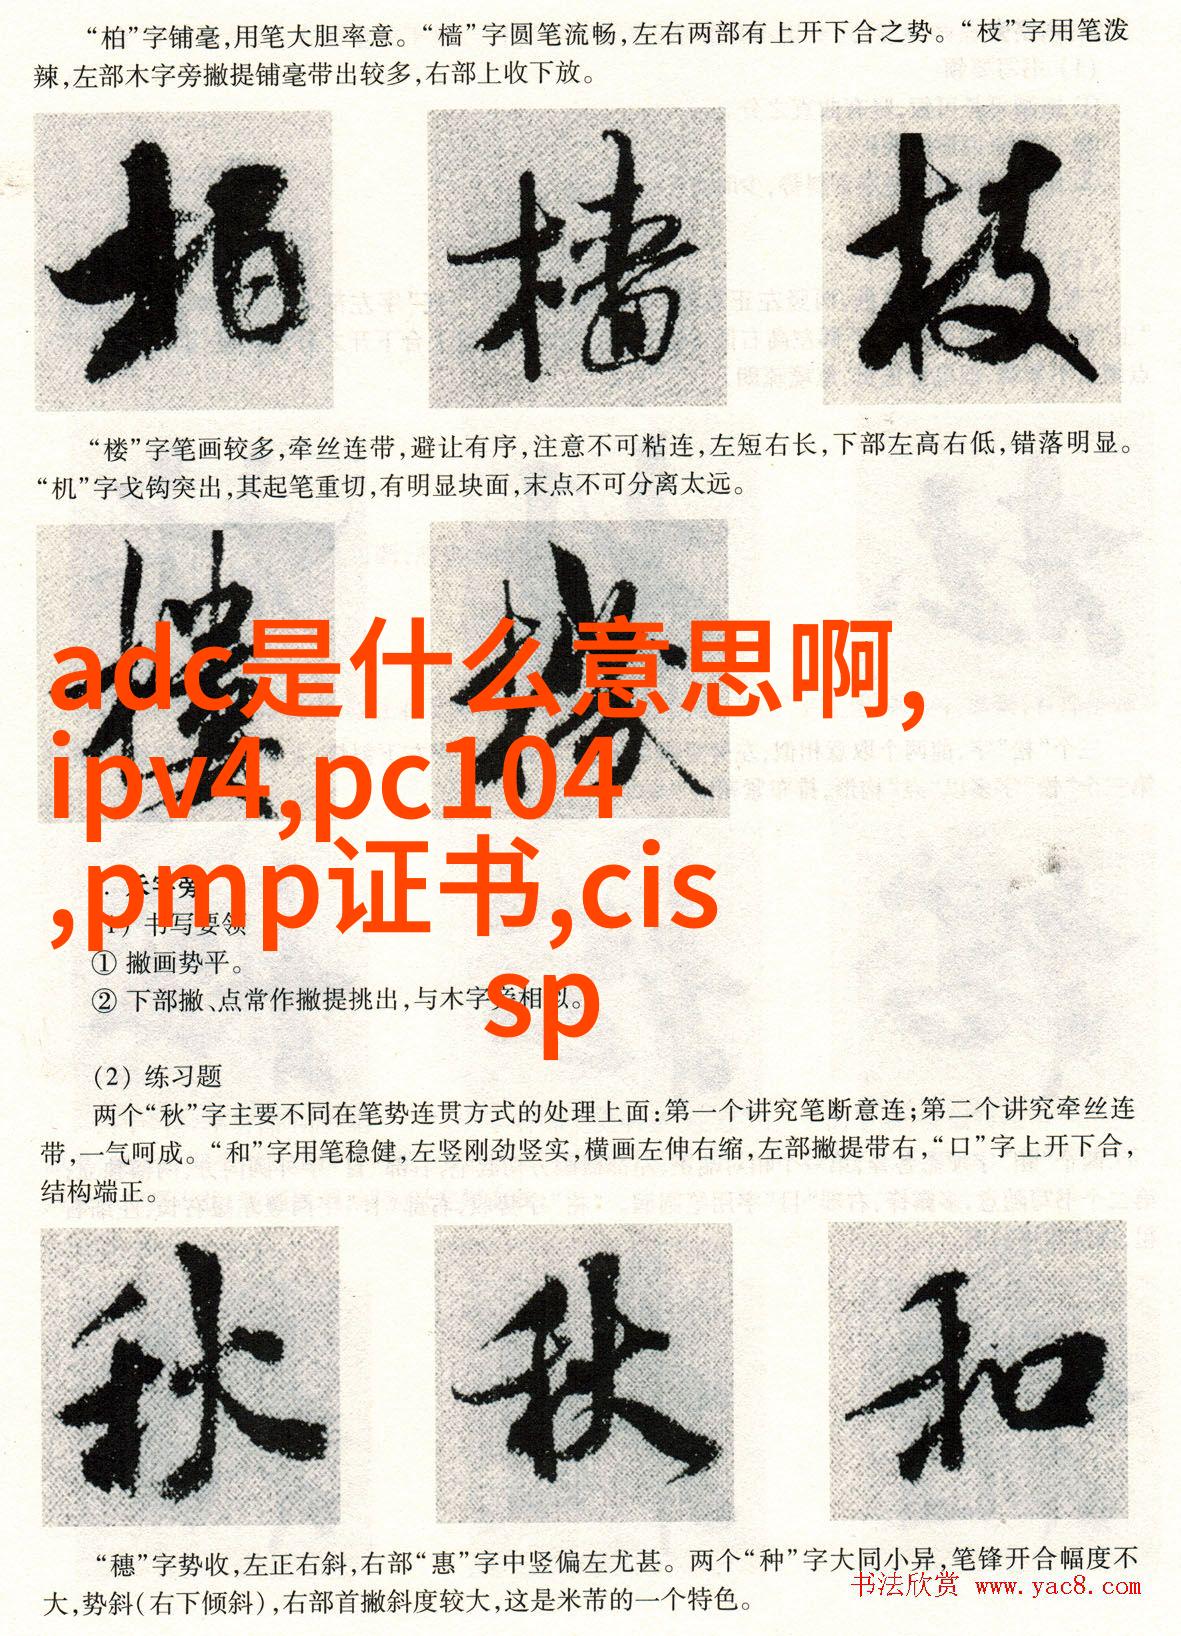 “柏”字铺毫,用笔大胆率意。“樯”字圆笔流畅,左右两部有上开下合之势。“枝”字用笔泼
辣,左部木字旁撇提铺毫带出较多,右部上收下放。
柏 樯 枝
“楼”字笔画较多,牵丝连带,避让有序,注意不可粘连,左短右长,下部左高右低,错落明显。
“机”字戈钩突出,其起笔重切,有明显块面,末点不可分离太远。
adc是什么意思啊,
ipv4,pc104
,pmp证书,cis
sp
书写要领
① 撇画势平。
② 下部撇、点常作撇提挑出,与木字旁相似。
(2) 练习题
两个“秋”字主要不同在笔势连贯方式的处理上面:第一个讲究笔断意连;第二个讲究牵丝连
带,一气呵成。“和”字用笔稳健,左竖刚劲竖实,横画左伸右缩,左部撇提带右,“口”字上开下合,
结构端正。
秋 秋 和
“穗”字势收,左正右斜,右部“惠”字中竖偏左尤甚。两个“种”字大同小异,笔锋开合幅度不
大,势斜(右下倾斜),右部首撇斜度较大,这是米芾的一个特色。
书法欣赏 www.yac8.com